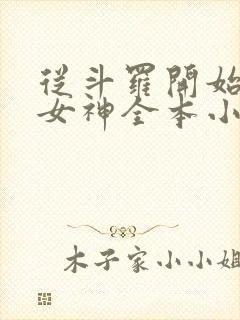 從斗羅開始
女神全本小
木子家小小姐